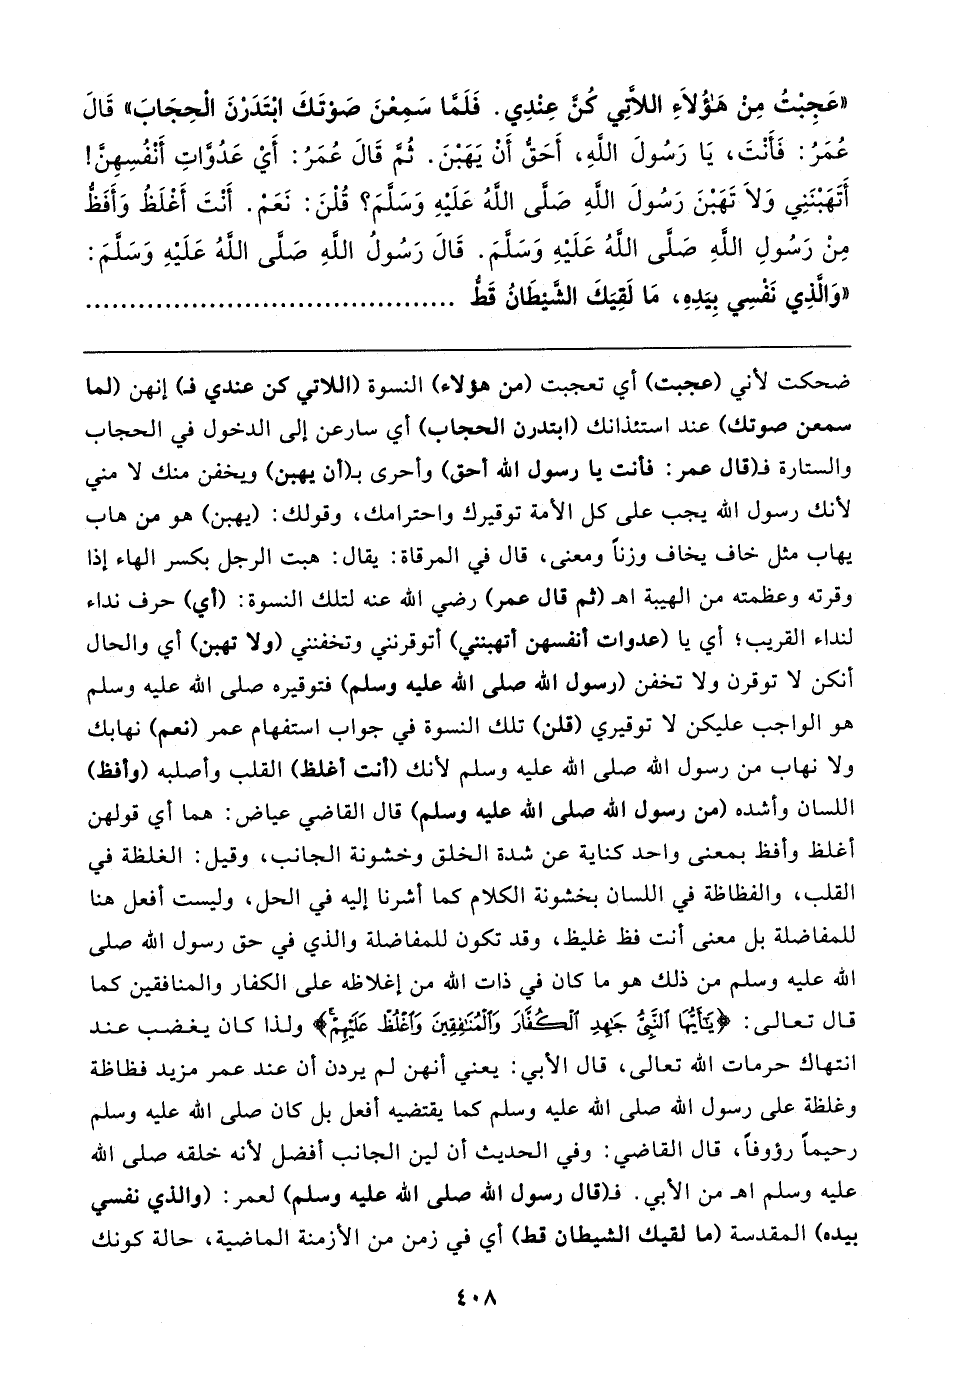 «عَجِبْتُ مِنْ هَؤُلَاءِ اللَّاتِي كُنَّ عِنْدِي. فَلَمَّا سَمِعْنَ صَوْتَكَ ابْتَدَرْنَ الْحِجَابَ» قَالَ
عُمَرُ: فَأَنْتَ، يَا رَسُولَ اللَّهِ، أَحَقُّ أَنْ يَهَبْنَ. ثُمَّ قَالَ عُمَرُ: أَيْ عَدُوَّاتِ أَنْفُسِهِنَّ!
أَتَهَبْنَنِي وَلَا تَهَبْنَ رَسُولَ اللَّهِ صَلَّى اللَّهُ عَلَيْهِ وَسَلَّمَ؟ قُلْنَ: نَعَمْ. أَنْتَ أَغْلَظُ وَأَفَظُّ
مِنْ رَسُولِ اللَّهِ صَلَّى اللَّهُ عَلَيْهِ وَسَلَّمَ. قَالَ رَسُولُ اللَّهِ صَلَّى اللَّهُ عَلَيْهِ وَسَلَّمَ:
«وَالَّذِي نَفْسِي بِيَدِهِ، مَا لَقِيَكَ الشَّيْطَانُ قَطُّ ........................................
ضحكت لأني (عجبت) أي تعجبت (من هؤلاء) النسوة (اللاتي كن عندي فـ) إنهن (لما
سمعن صوتك) عند استئذانك (ابتدرن الحجاب) أي سارعن إلى الدخول في الحجاب
والستارة فـ(قال عمر: فأنت يا رسول الله أحق) وأحرى بـ(أن يهبن) ويخفن منك لا مني
لأنك رسول الله يجب على كل الأمة توقيرك واحترامك، وقولك: (يهبن) هو من هاب
يهاب مثل خاف يخاف وزناً ومعنى، قال في المرقاة: يقال: هبت الرجل بكسر الهاء إذا
وقرته وعظمته من الهيبة اهـ (ثم قال عمر) رضي الله عنه لتلك النسوة: (أي) حرف نداء
لنداء القريب؛ أي يا (عدوات أنفسهن أتهبنني) أتوقرنني وتخفنني (ولا تهبن) أي والحال
أنكن لا توقرن ولا تخفن (رسول الله صلى الله عليه وسلم) فتوقيره صلى الله عليه وسلم
هو الواجب عليكن لا توقيري (قلن) تلك النسوة في جواب استفهام عمر (نعم) نهابك
ولا نهاب من رسول الله صلى الله عليه وسلم لأنك (أنت أغلظ) القلب وأصلبه (وأفظ)
اللسان وأشده (من رسول الله صلى الله عليه وسلم) قال القاضي عياض: هما أي قولهن
أغلظ وأفظ بمعنى واحد كناية عن شدة الخلق وخشونة الجانب، وقيل: الغلظة في
القلب، والفظاظة في اللسان بخشونة الكلام كما أشرنا إليه في الحل، وليست أفعل هنا
للمفاضلة بل معنى أنت فظ غليظ، وقد تكون للمفاضلة والذي في حق رسول الله صلى
الله عليه وسلم من ذلك هو ما كان في ذات الله من إغلاظه على الكفار والمنافقين كما
قال تعالى: ﴿يَٰٓأَيُّهَا ٱلنَّبِىُّ جَٰهِدِ ٱلْكُفَّارَ وَٱلْمُنَٰفِقِينَ وَٱغْلُظْ عَلَيْهِمْ﴾ ولذا كان يغضب عند
انتهاك حرمات الله تعالى، قال الأبي: يعني أنهن لم يردن أن عند عمر مزيد فظاظة
وغلظة على رسول الله صلى الله عليه وسلم كما يقتضيه أفعل بل كان صلى الله عليه وسلم
رحيماً رؤوفاً، قال القاضي: وفي الحديث أن لين الجانب أفضل لأنه خلقه صلى الله
عليه وسلم اهـ من الأبي. فـ(قال رسول الله صلى الله عليه وسلم) لعمر: (والذي نفسي
بيده) المقدسة (ما لقيك الشيطان قط) أي في زمن من الأزمنة الماضية، حالة كونك
٤٠٨